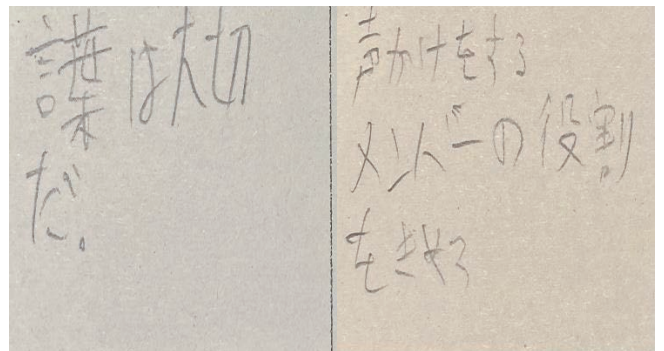 諜は大切
だ。
声かけをする
メンバーの役割
をきめる